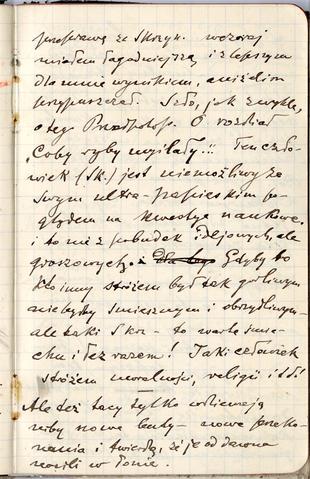 przeprawę ze Skrzyn. wczoraj
miałem łagodniejszą i z lepszym
dla mnie wynikiem, aniżelim
przypuszczał. Szło, jak zwykle,
o tego O rozdział
„Coby ryby myślały"!! Ten czło-
wiek (Sk.) jest niemożliwy ze
swym ultra-papieskim po-
glądem na kwestye naukowe.
i to nie z pobudek idejowych, ale
groszowych. Gdyby to
kto inny stróżem był tak gorliwym
niebyłby śmiesznym i obrzydliwym-
ale taki Skrz - to warte śmie-
chu i łez razem! Taki człowiek
stróżem moralności, religii itd!
Ale też tacy tylko wdziewają
niby nowe buty - nowe przeko-
nania i twierdzą, że je od dawna
nosili w łonie.